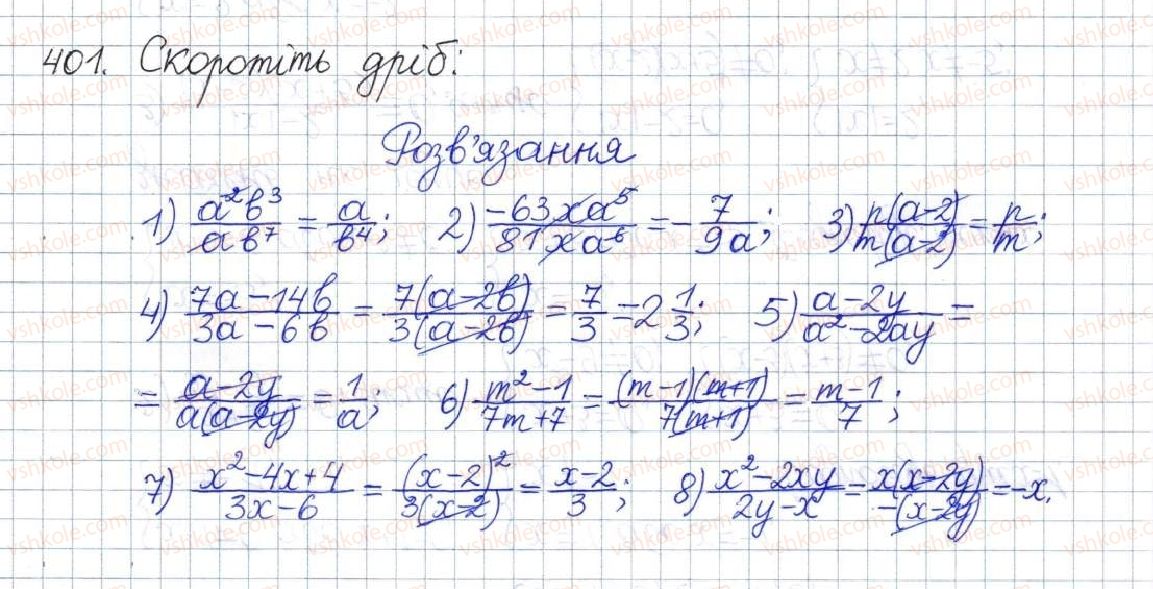 401. Скоротіть дріб:
Розв'язання
1) a²b³/ab⁷ = a/b⁴; 2) -63xa⁵/81xa⁶ = -7/9a; 3) p(a-2)/m(a-2) = p/m;
4) 7a-14b/3a-6b = 7(a-2b)/3(a-2b) = 7/3 = 2 1/3; 5) a-2y/a²-2ay =
= a-2y/a(a-2y) = 1/a; 6) m²-1/7m+7 = (m-1)(m+1)/7(m+1) = m-1/7;
7) x²-4x+4/3x-6 = (x-2)²/3(x-2) = x-2/3; 8) x²-2xy/2y-x = x(x-2y)/-(x-2y) = -x.
vshkole.com